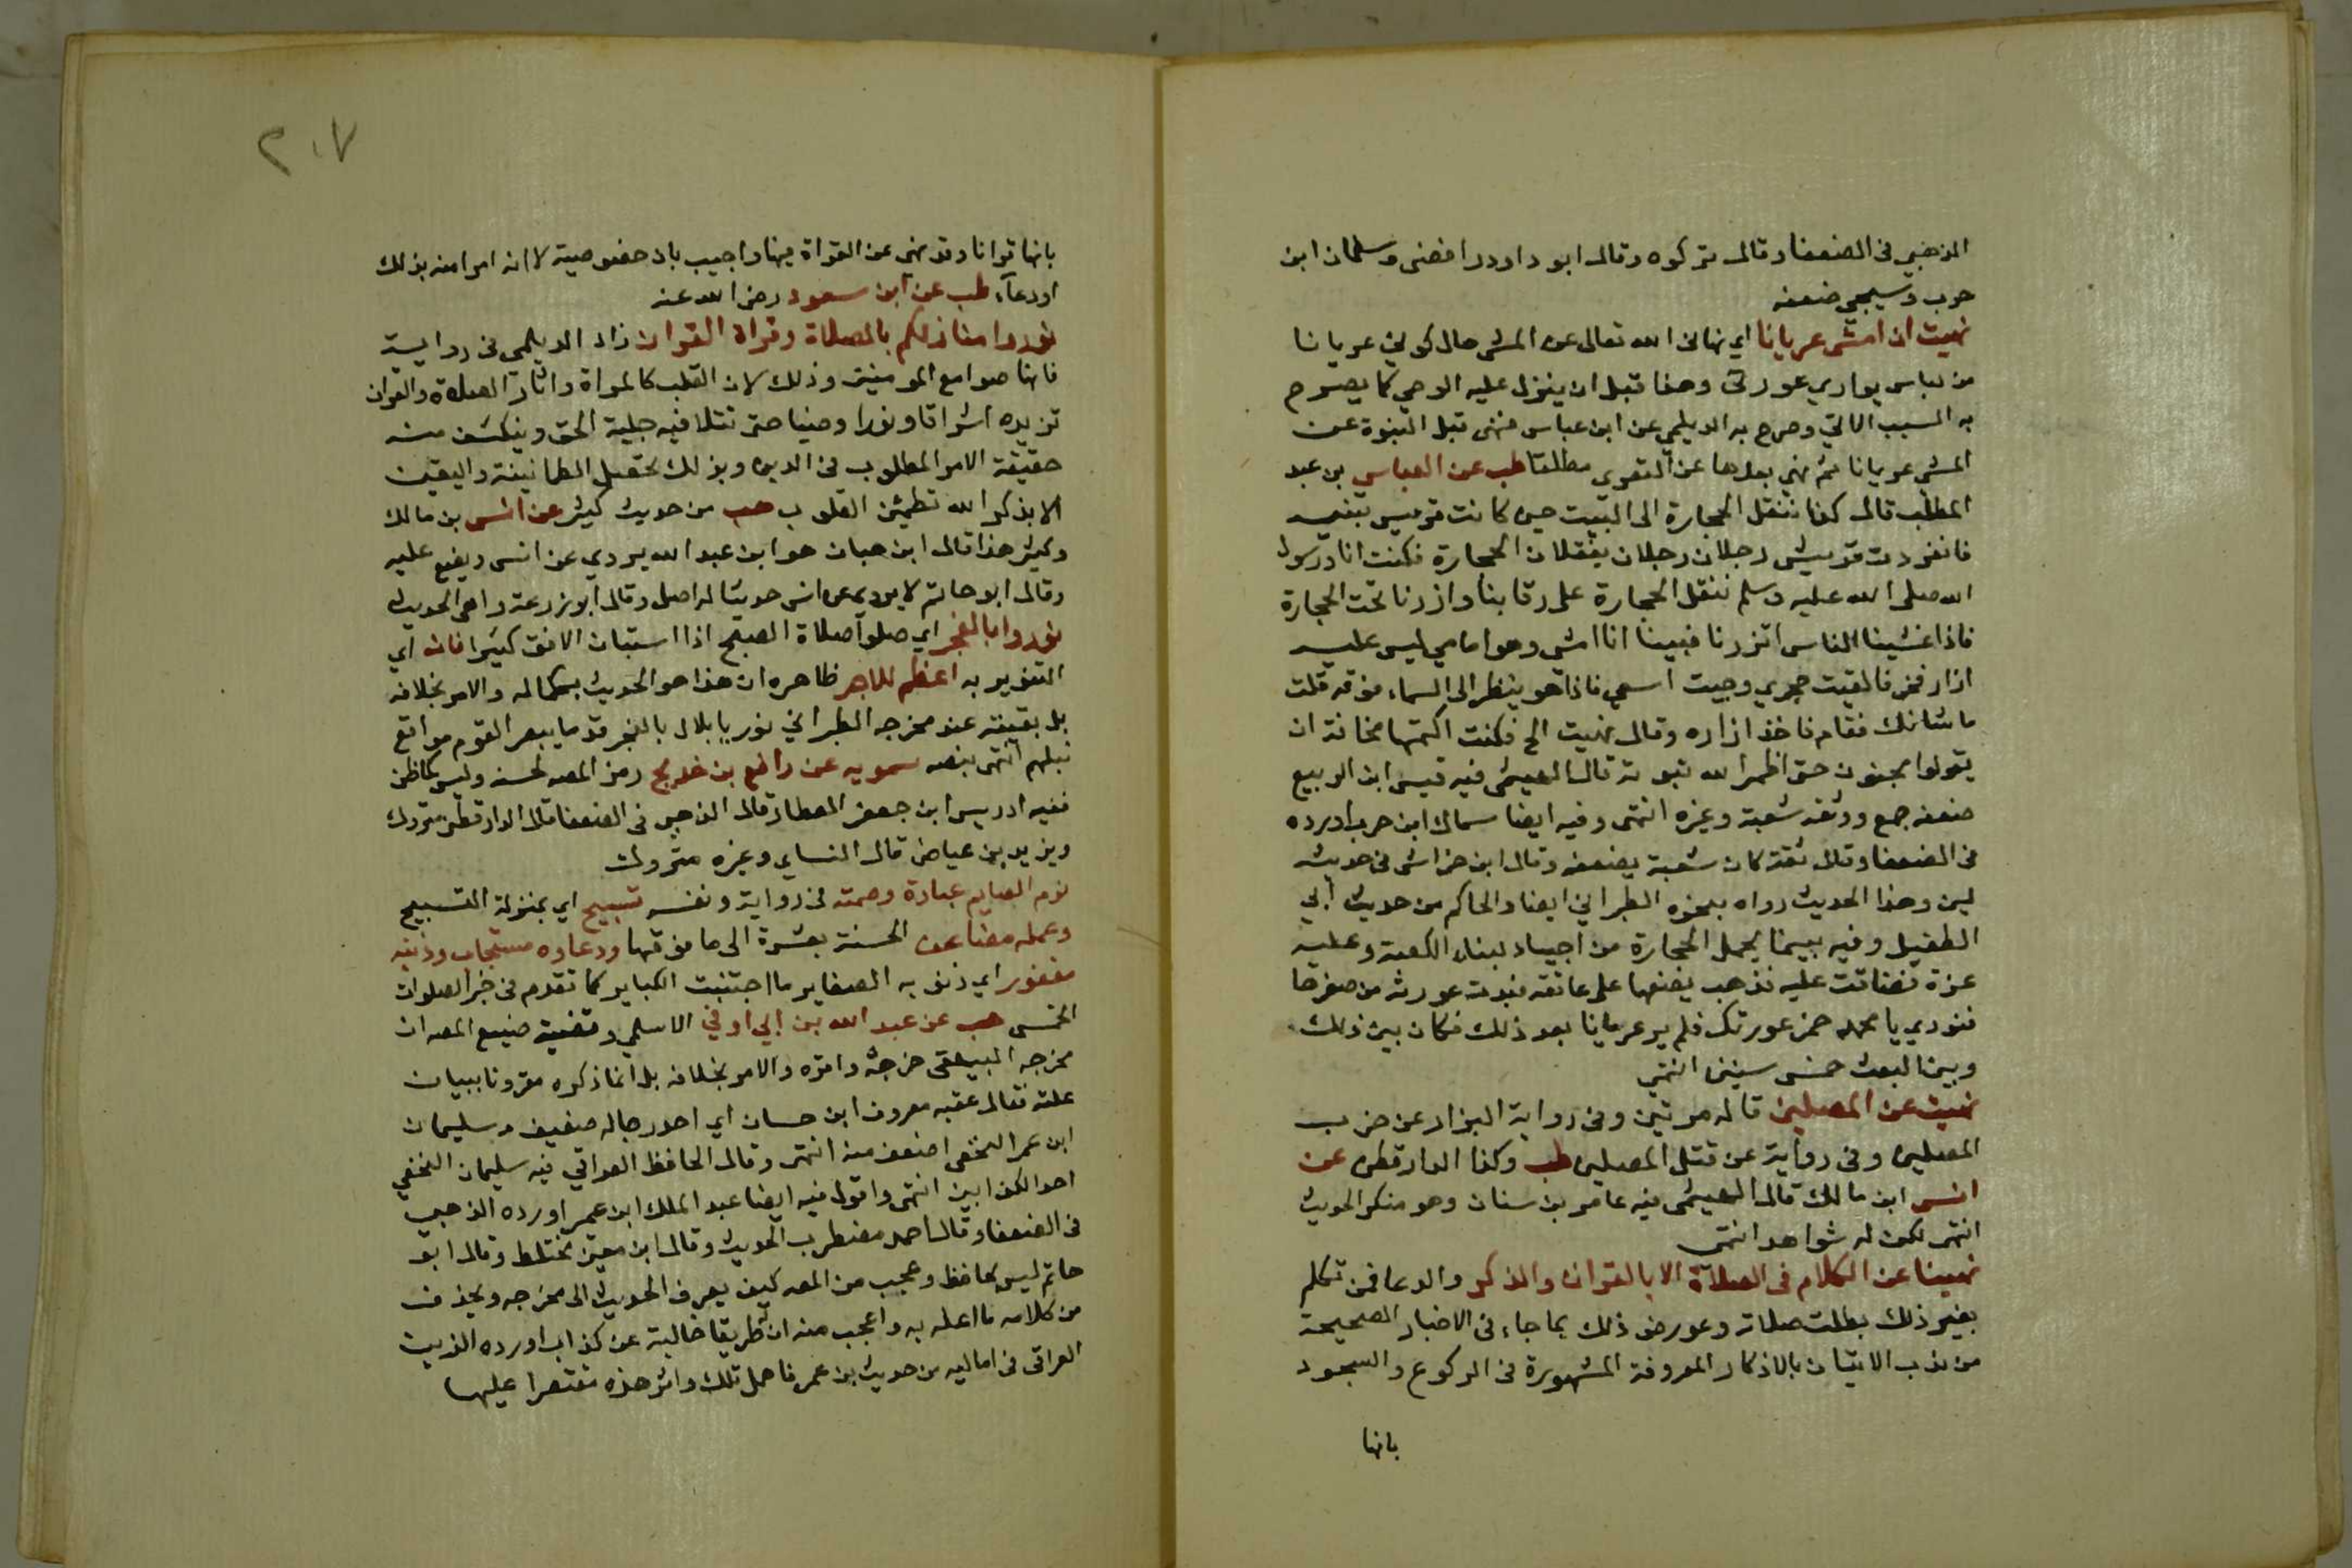 الذهبي في الضعفا وقال تركوه وقال ابو داود رافضى وسلمان ابن
حرب وسيجي ضعفه
نهيت ان امشى عريانا اي نهانى الله تعالى عن المشى حال كوني عريانا
من لباس يوارى عورتى وهذا قبل ان ينزل عليه الوحي كما يصرح
به السبب الاتي وصرح به الديلمي عن ابن عباس فنهى قبل النبوة عن
المشى عريانا ثم نهي بعدها عن التعرى مطلقا طب عن العباس بن عبد
المطلب قال كنا ننقل الحجارة الى البيت حين كانت قريش تبنيه
فانفردت قريش رجلان رجلان ينقلان الحجارة فكنت انا ورسول
الله صلى الله عليه وسلم ننقل الحجارة على رقابنا وازرنا تحت الحجارة
فاذا غشينا الناس اتزرنا فبينا انا امشى وهو امامي ليس عليه
ازار فخر فالقيت حجري وجيت اسعي فاذا هو ينظر الى السماء فوقه قلت
ما شانك فقام فاخذ ازاره وقال نهيت الخ فكنت اكتمها مخافة ان
يقولوا مجنون حتى اظهر الله نبوته قال الهيثمى فيه قيس ابن الربيع
ضعفه جمع ووثقه شعبة وغيره انتهى وفيه ايضا سماك ابن حرب اورده
في الضعفا وقال ثقة كان شعبة يضعفه وقال ابن خراش في حديثه
لين وهذا الحديث رواه بنحوه الطبراني ايضا والحاكم من حديث أبي
الطفيل وفيه بينما يحمل الحجارة من اجياد لبناء الكعبة وعليه
عزة فضاقت عليه فذهب يضعها على عاتقه فبدت عورته من صغرها
فنودي يا محمد خمر عورتك فلم ير عريانا بعد ذلك فكان بين ذلك
وبين البعث خمس سنين انتهى
نهيت عن المصلين قاله مرتين وفى رواية البزار عن ضرب
المصلين وفى رواية عن قتل المصلين طب وكذا الدارقطى عن
انس ابن مالك قال الهيثمى فيه عامر بن سنان وهو منكر الحديث
انتهى لكن له شواهد انتهى
نهينا عن الكلام في الصلاة الا بالقرآن والذكر والدعا فمن تكلم
بغير ذلك بطلت صلاته وعورض ذلك بما جاء في الاخبار الصحيحة
من ندب الاتيان بالاذكار المعروفة المشهورة فى الركوع والسجود
بانها
٢٠٧
بانها قرانا وقد نهى عن القراة فيها واجيب بان خصوصية لا انه امر امنه بذلك
اودعآء طب عن آبن سعود رضى الله عنه
نوروا منازلكم بالصلاة وقراة القران زاد الديلمى فى رواية
فانها صوامع المومنين وذلك لان القلب كالمراة واثار الصلاة والقران
تزيده اشراقا ونورا وضيا حتى تتلا فيه جلية الحق وينكشف منه
حقيقة الامر المطلوب في الدين وبذلك تحصل الطمانينة واليقين
الا بذكر الله تطمئن القلوب هب من حديث كثير عن انس بن مالك
وكثير هذا قال ابن حبان هو ابن عبد الله يروي عن انس ويضع عليه
وقال ابو حاتم لا يروى عن انس حديثا له اصل وقال ابو زرعة واهى الحديث
نوروا بالفجر اي صلوا صلاة الصبح اذا استبان الافق كثيرا فانه اي
التنوير به اعظم للاجر ظاهره ان هذا هو الحديث بكماله والامر بخلافه
بل بقيته عند مخرجه الطبراني نور يا بلال بالفجر قدر ما يبصر القوم مواقع
نبلهم انتهى بنصه سمويه عن رافع بن خديج رمز المصه لحسنه وليس كما ظن
ففيه ادريس ابن جعفر العطار قال الذهبى فى الضعفا قال الدارقطنى متروك
ويزيد بن عياض قال النساي وغيره متروك
نوم الصايم عبادة وصمته فى رواية ونفسه تسبيح اي بمنزلة التسبيح
وعمله مضاعف الحسنة بعشرة الى ما فوقها ودعاوه مستجاب وذنبه
مغفور اي ذنوبه الصغاير ما اجتنبت الكباير كما تقدم فى خبر الصلوات
الخمس هب عن عبد الله بن أبي اوفي الاسلمي وقضية صنيع المصه ان
مخرجه البيهقى خرجه واقره والامر بخلافه بل انما ذكره مقرونا ببيان
علته فقال عقبه معروف ابن حسان اي احد رجاله ضعيف وسليمان
ابن عمر النخعى اضعف منه انتهى وقال الحافظ العراقي فيه سليمان النخعي
احد الكذابين انتهى واقول فيه ايضا عبد الملك ابن عمير اورده الذهبى
فى الضعفا وقال احمد مضطرب الحديث وقال ابن معين مختلط وقال ابو
حاتم ليس بحافظ وعجب من المصه كيف يعرف الحديث الى مخرجه ويحذف
من كلامه ما اعله به واعجب منه ان له طريقا خالية عن كذاب اورده الزين
العراقى فى اماليه من حديث بن عمر فاهمل تلك واثر هذه مقتصرا عليها